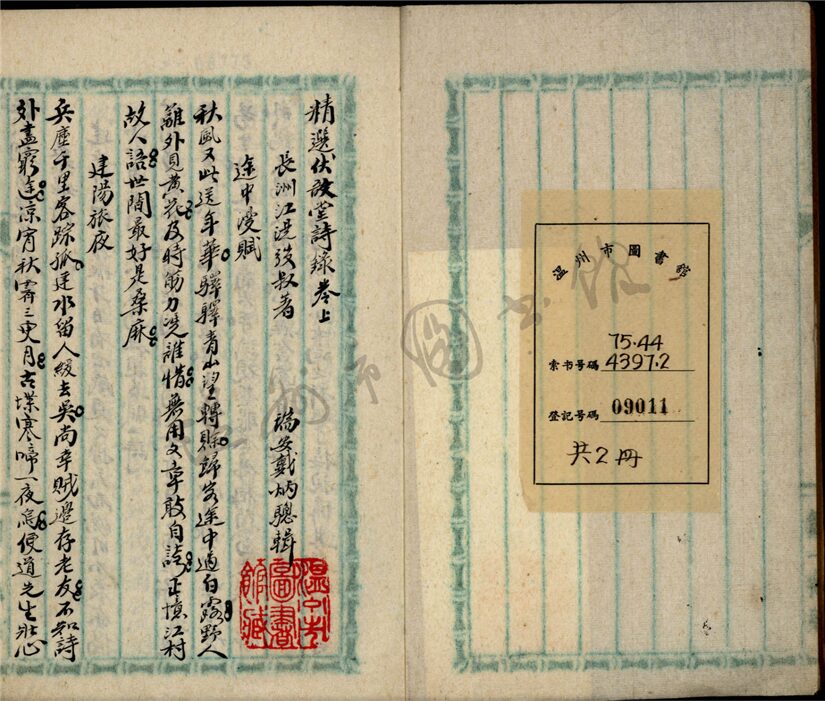 温州市圖書館
索书号碼 75.44
4397.2
登記号碼 09011
共2册
精選伏敔堂詩錄卷上
長洲江湜弢叔著 瑞安戴炳驄輯
途中漫賦
秋風又此送年華驛驛青山望轉賒歸客途中過白露野人
籬外見黃花及時筋力先誰惜無用文章敢自誇正憶江村
故人語世間最好是桑麻
建陽旅夜
兵塵千里客踪孤建水留人緩去吳尚幸賊邊存老友不知詩
外盡窮途涼宵秋霽三更月古堞寒啼一夜烏便道先生壯心
溫州市圖書館藏
温州市图书馆